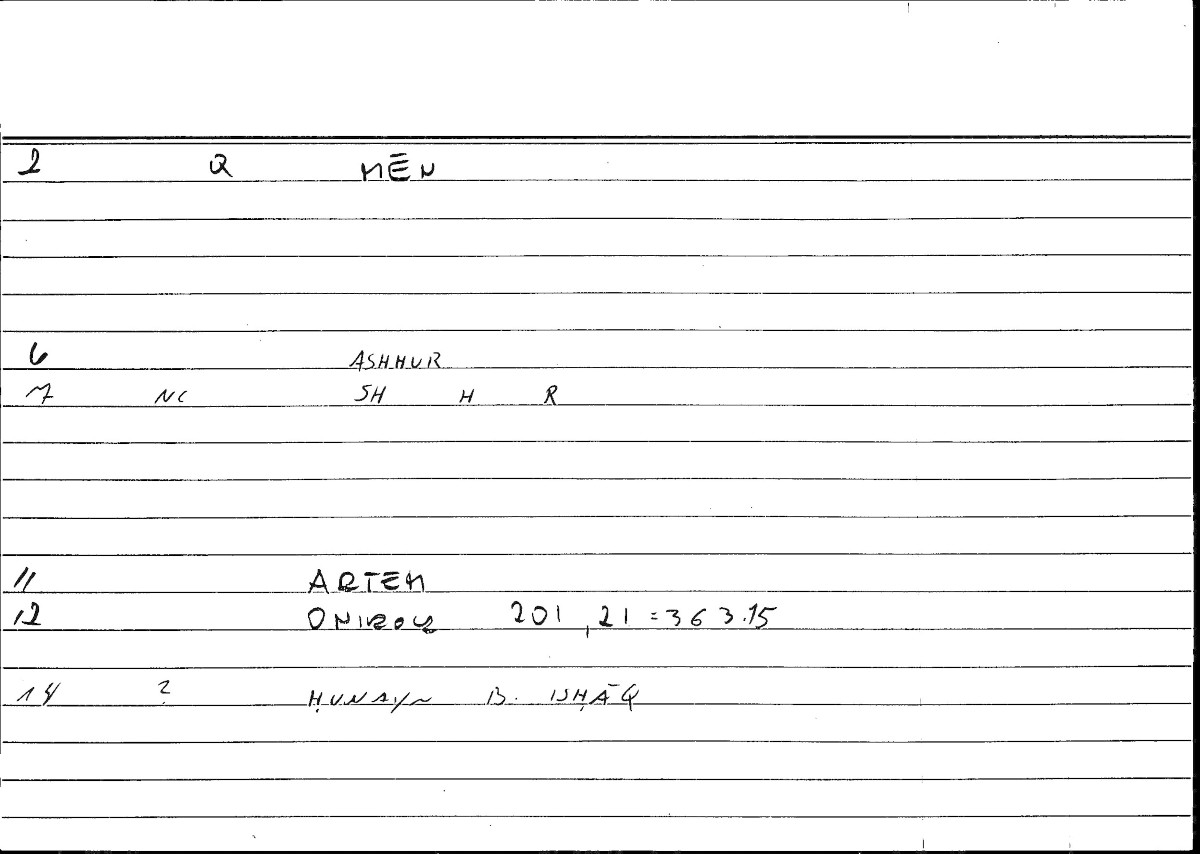 2 Q MĒN
6 ASHHUR
7 NC SH H R
11 ARTEM
12 ONIROC 201,21=363.15
14 ? ḤUNAYN B. ISḤĀQ